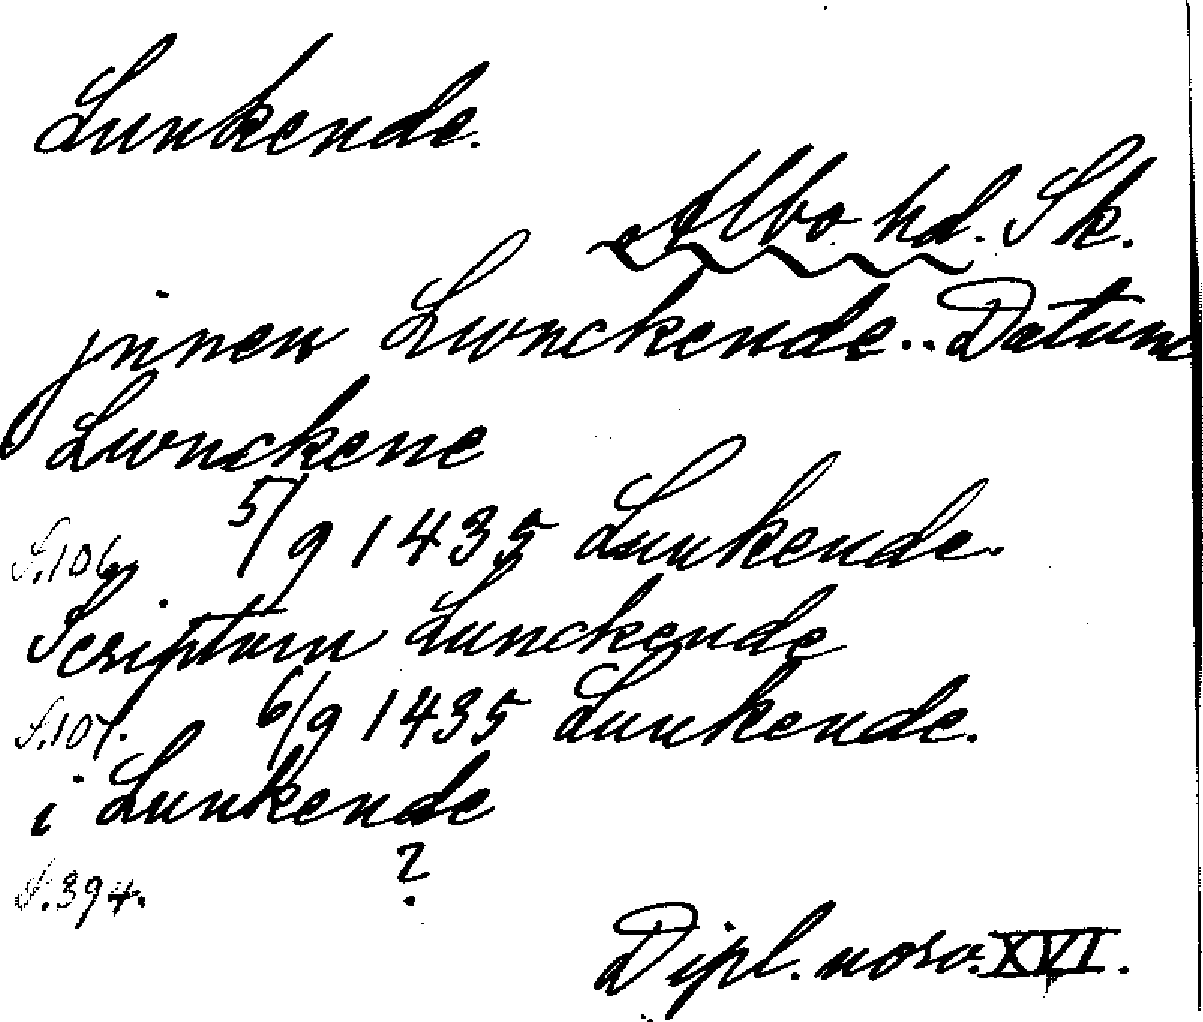 Lunkende.
Albo hd. Sk.
jnnen Lwnckende.. Datum
Lwnckene
S.106. 5/9 1435 Lunkende.
Scriptum Lunckende
S.107. 6/9 1435 Lunkende.
i Lunkende
S.394. ?
Dipl. norv. XVI.